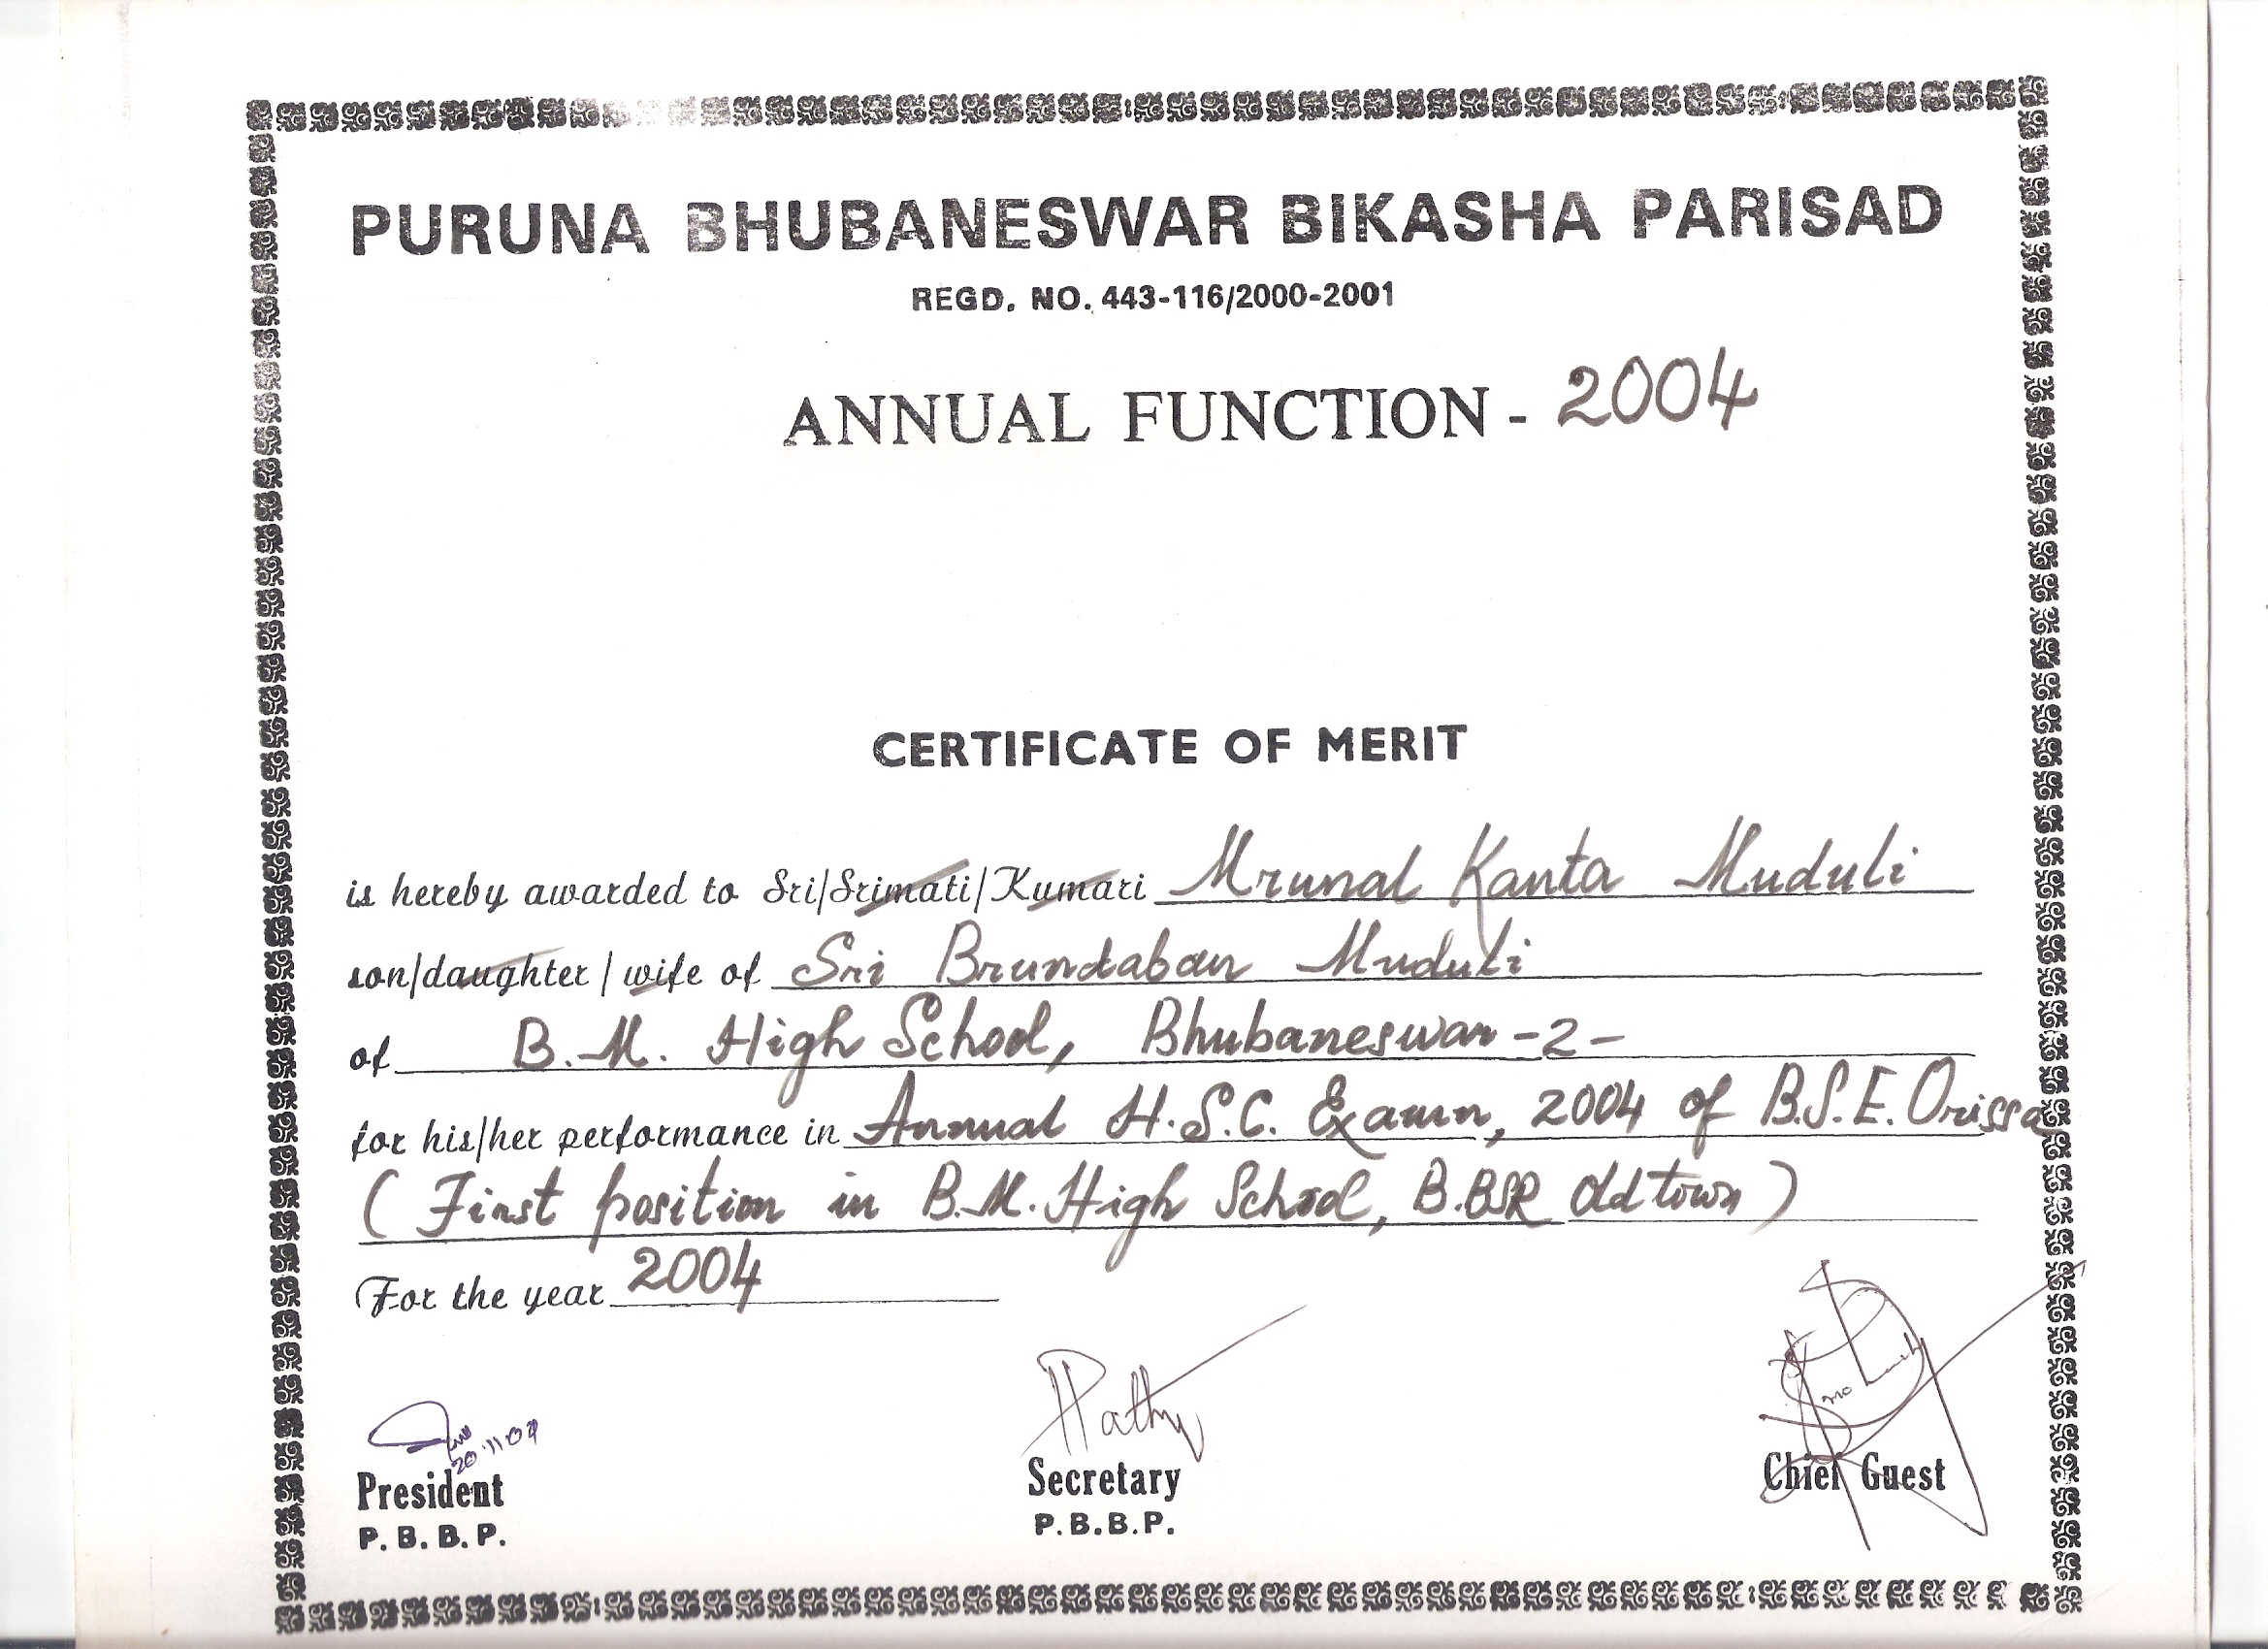 PURUNA BHUBANESWAR BIKASHA PARISAD
REGD. NO. 443-116/2000-2001
ANNUAL FUNCTION - 2004
CERTIFICATE OF MERIT
is hereby awarded to Sri/Srimati/Kumari Mrunal Kanta Muduli
son/daughter/wife of Sri Brundaban Muduli
of B.M. High School, Bhubaneswar-2-
for his/her performance in Annual H.S.C. Examn, 2004 of B.S.E. Orissa
(First position in B.M. High School, B.BSR Oldtown)
For the year 2004
20.11.04
President Secretary Chief Guest
P.B.B.P. P.B.B.P.